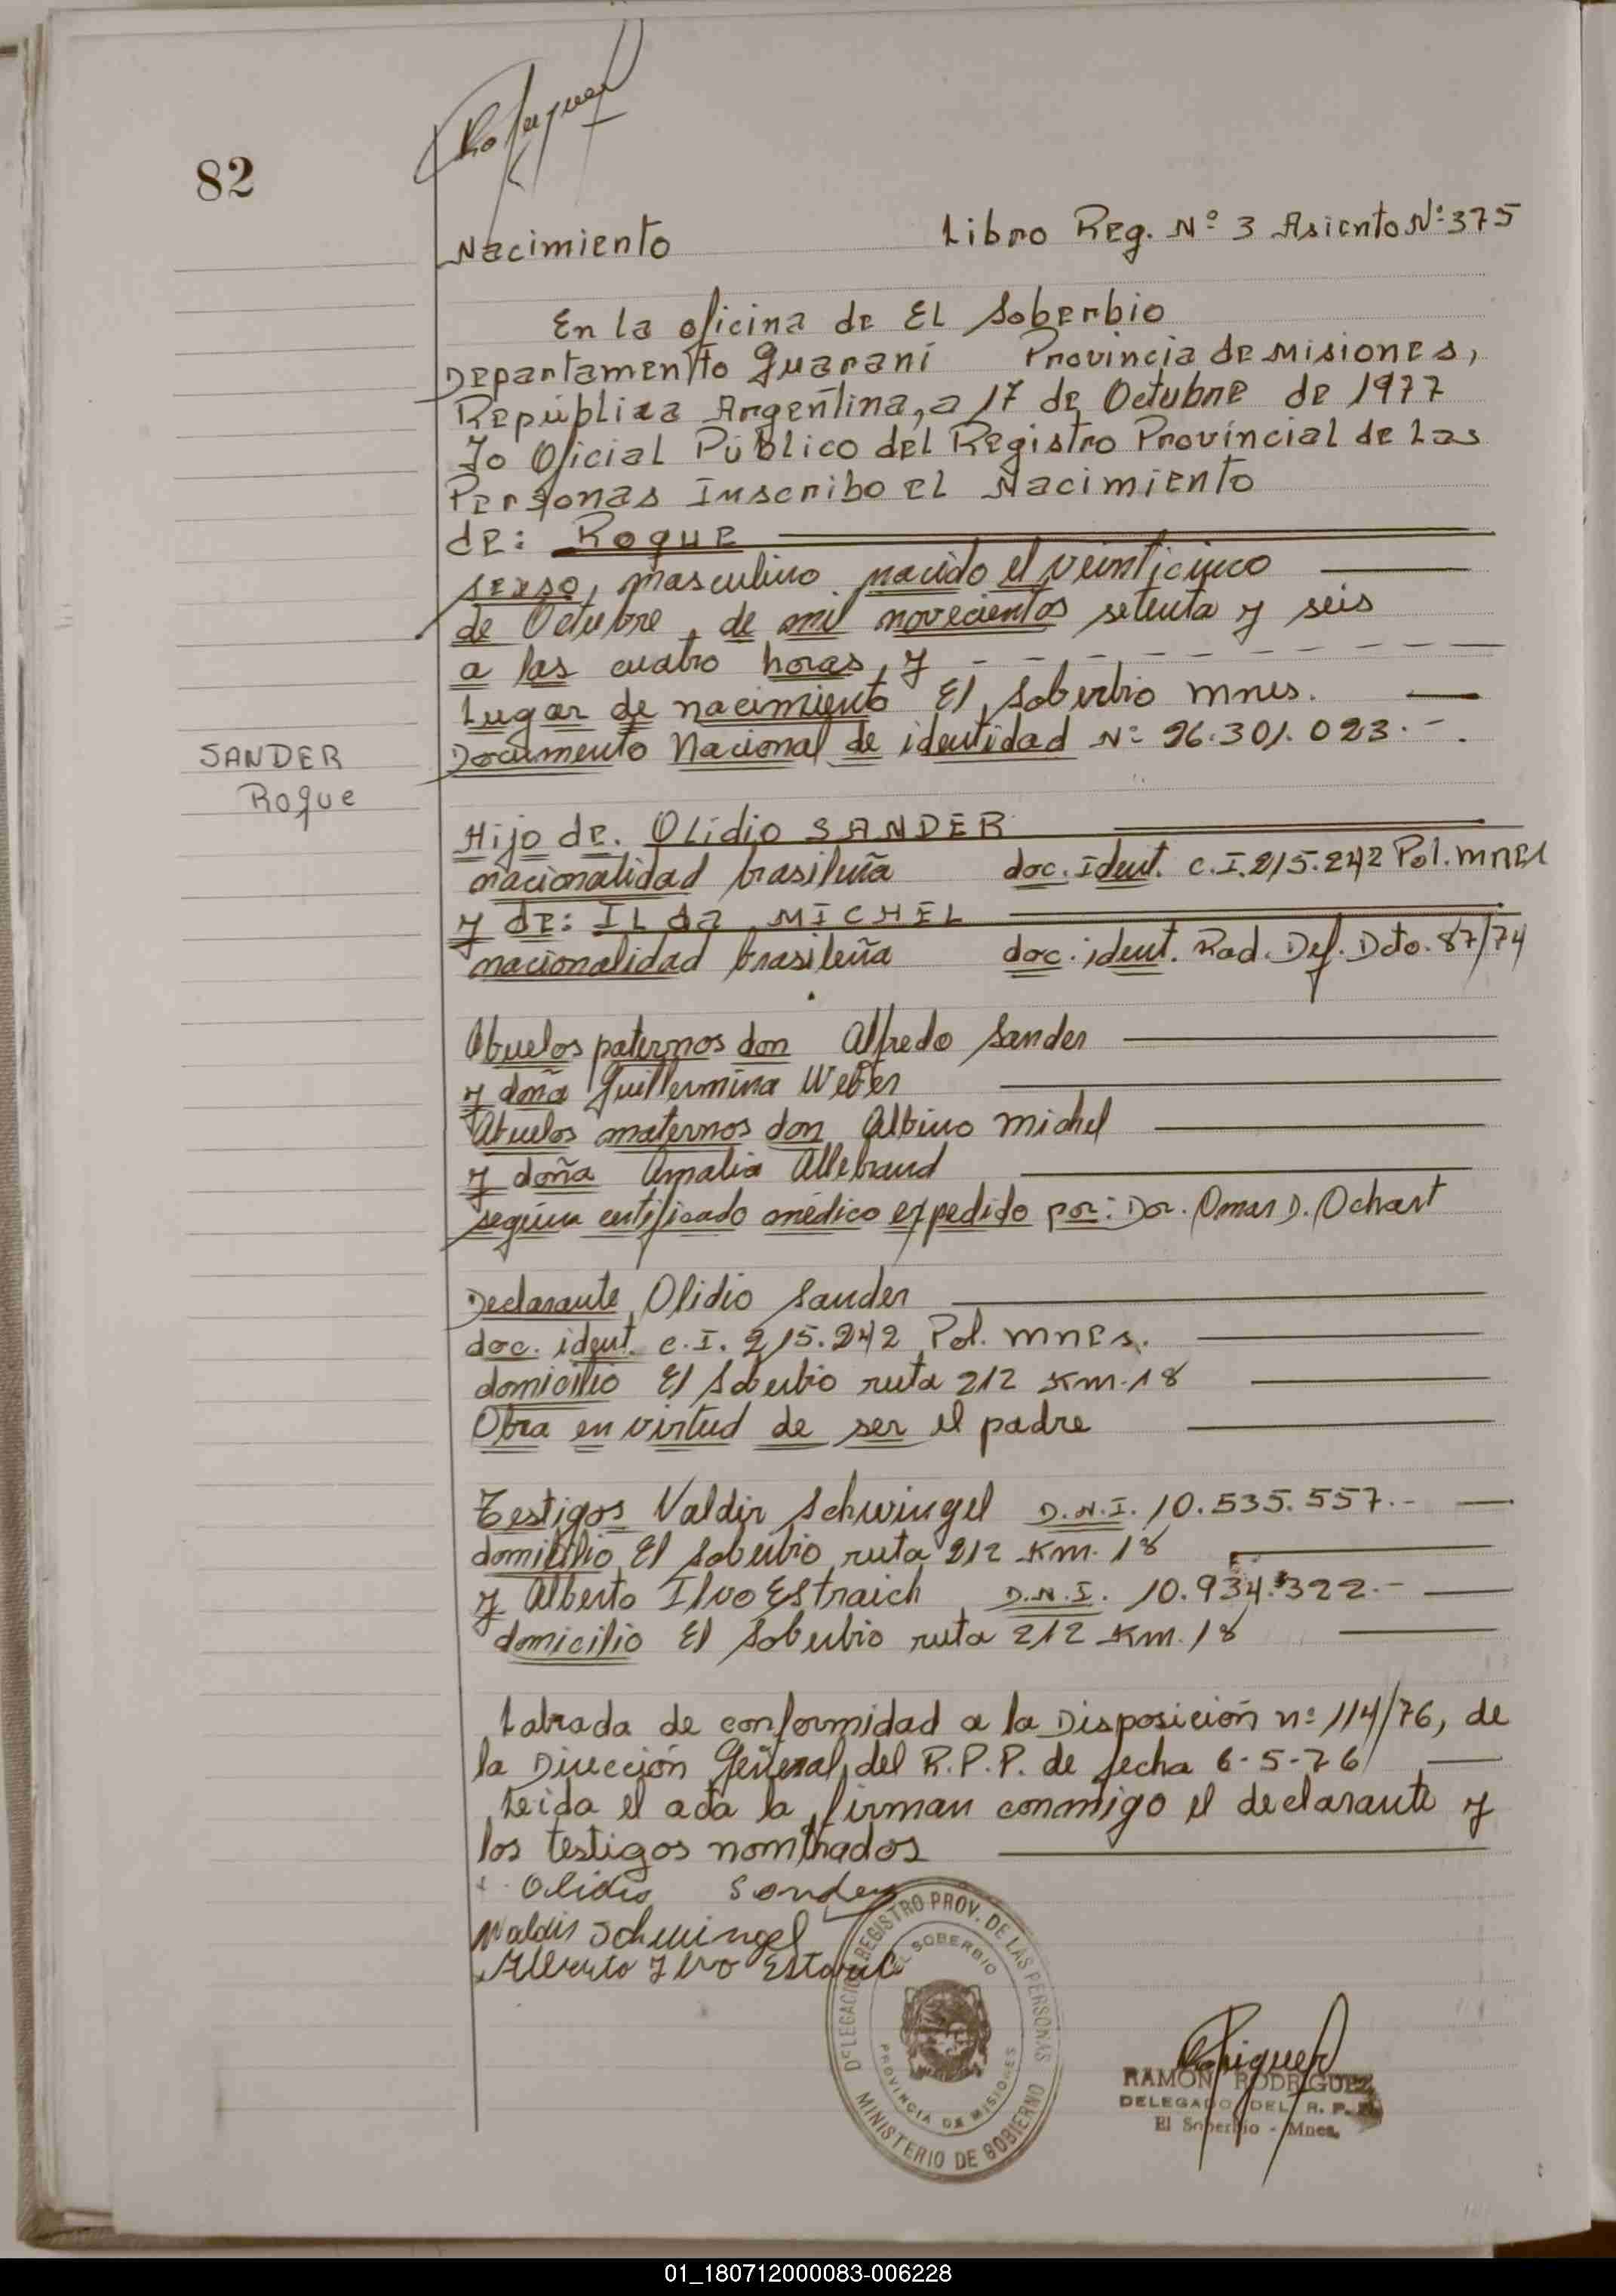 82
Nacimiento Libro Reg. Nº 3 Asiento Nº 375
En la oficina de El Soberbio
Departamento Guaraní Provincia de Misiones,
República Argentina, a 17 de Octubre de 1977
Yo Oficial Público del Registro Provincial de Las
Personas Inscribo el Nacimiento
de: Roque
sexso, masculino nacido el veinticinco
de Octubre, de mil novecientos setenta y seis
a las cuatro horas, y - - - - - - - - - -
Lugar de nacimiento El Soberbio mnes.
Documento Nacional de identidad Nº 26.301.023.-.
SANDER
Roque
Hijo de. Olidio SANDER
nacionalidad brasileña doc. Ident. C.I. 215.242 Pol. mnes
y de: ILda MICHEL
nacionalidad brasileña doc. ident. Rad. Def. Dcto. 87/74
Abuelos paternos don Alfredo Sander
y doña Guillermina Weber
Abuelos maternos don Albino Michel
y doña Amalia Allebrand
según certificado médico expedido por: Dor. Omar D. Ochart
Declarante Olidio Sander
doc. ident. c.I. 215.242 Pol. mnes.
domicilio El Soberbio ruta 212 Km. 18
Obra en virtud de ser el padre
Testigos Valdir Schwingel D.N.I. 10.535.557.-
domicilio El Soberbio ruta 212 Km. 18
y Alberto Ilvo Estraich D.N.I. 10.934.322.-
domicilio El Soberbio ruta 212 Km. 18
Labrada de conformidad a la Disposición nº 114/76, de
la Dirección General del R.P.P. de fecha 6-5-76
Leida el acta la firman conmigo el declarante y
los testigos nombrados
Olidio Sander
Waldir Schwingel
Alberto Ilvo
DELEGACION REGISTRO PROV. DE LAS PERSONAS
EL SOBERBIO
PROVINCIA DE MISIONES
MINISTERIO DE GOBIERNO
RAMON RODRIGUEZ
DELEGADO DEL R. P. P.
El Soberbio - Mnes.
01_180712000083-006228